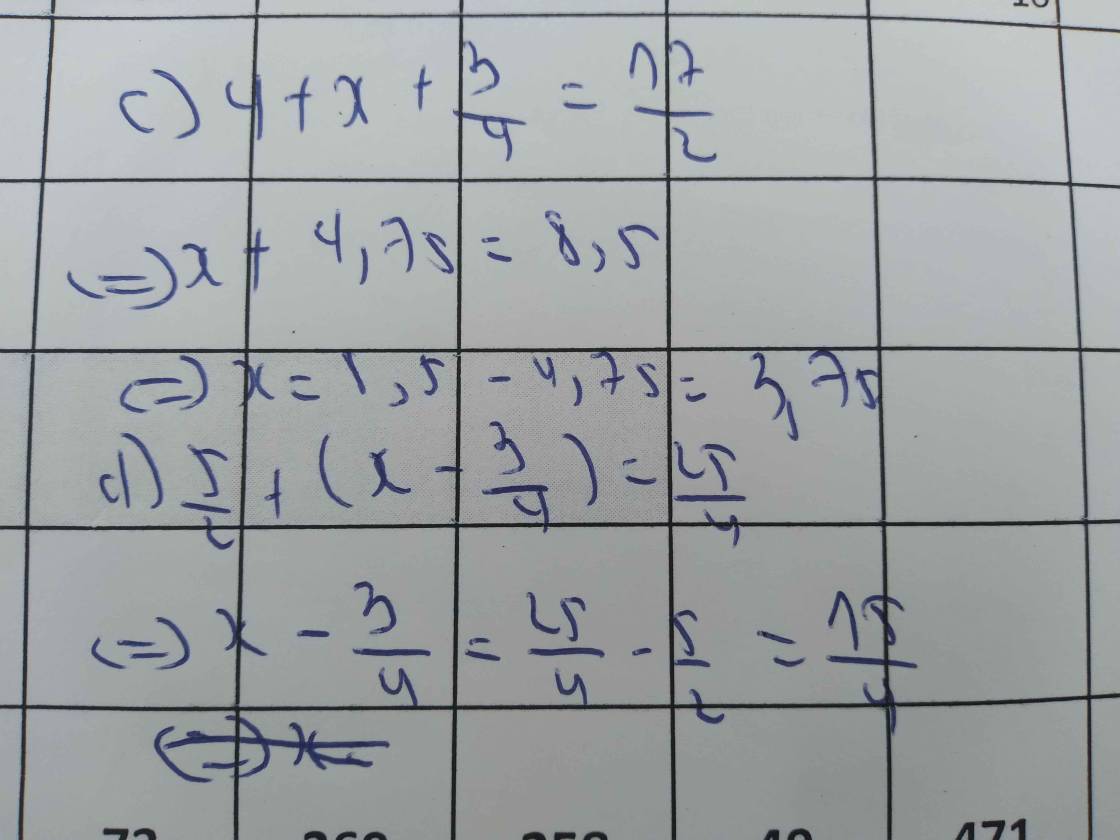 c) 4 + x + 3/4 = 17/2
(=) x + 4,75 = 8,5
(=) x = 8,5 - 4,75 = 3,75
d) 5/2 + (x - 3/4) = 25/4
(=) x - 3/4 = 25/4 - 5/2 = 15/4
(=) x =
471